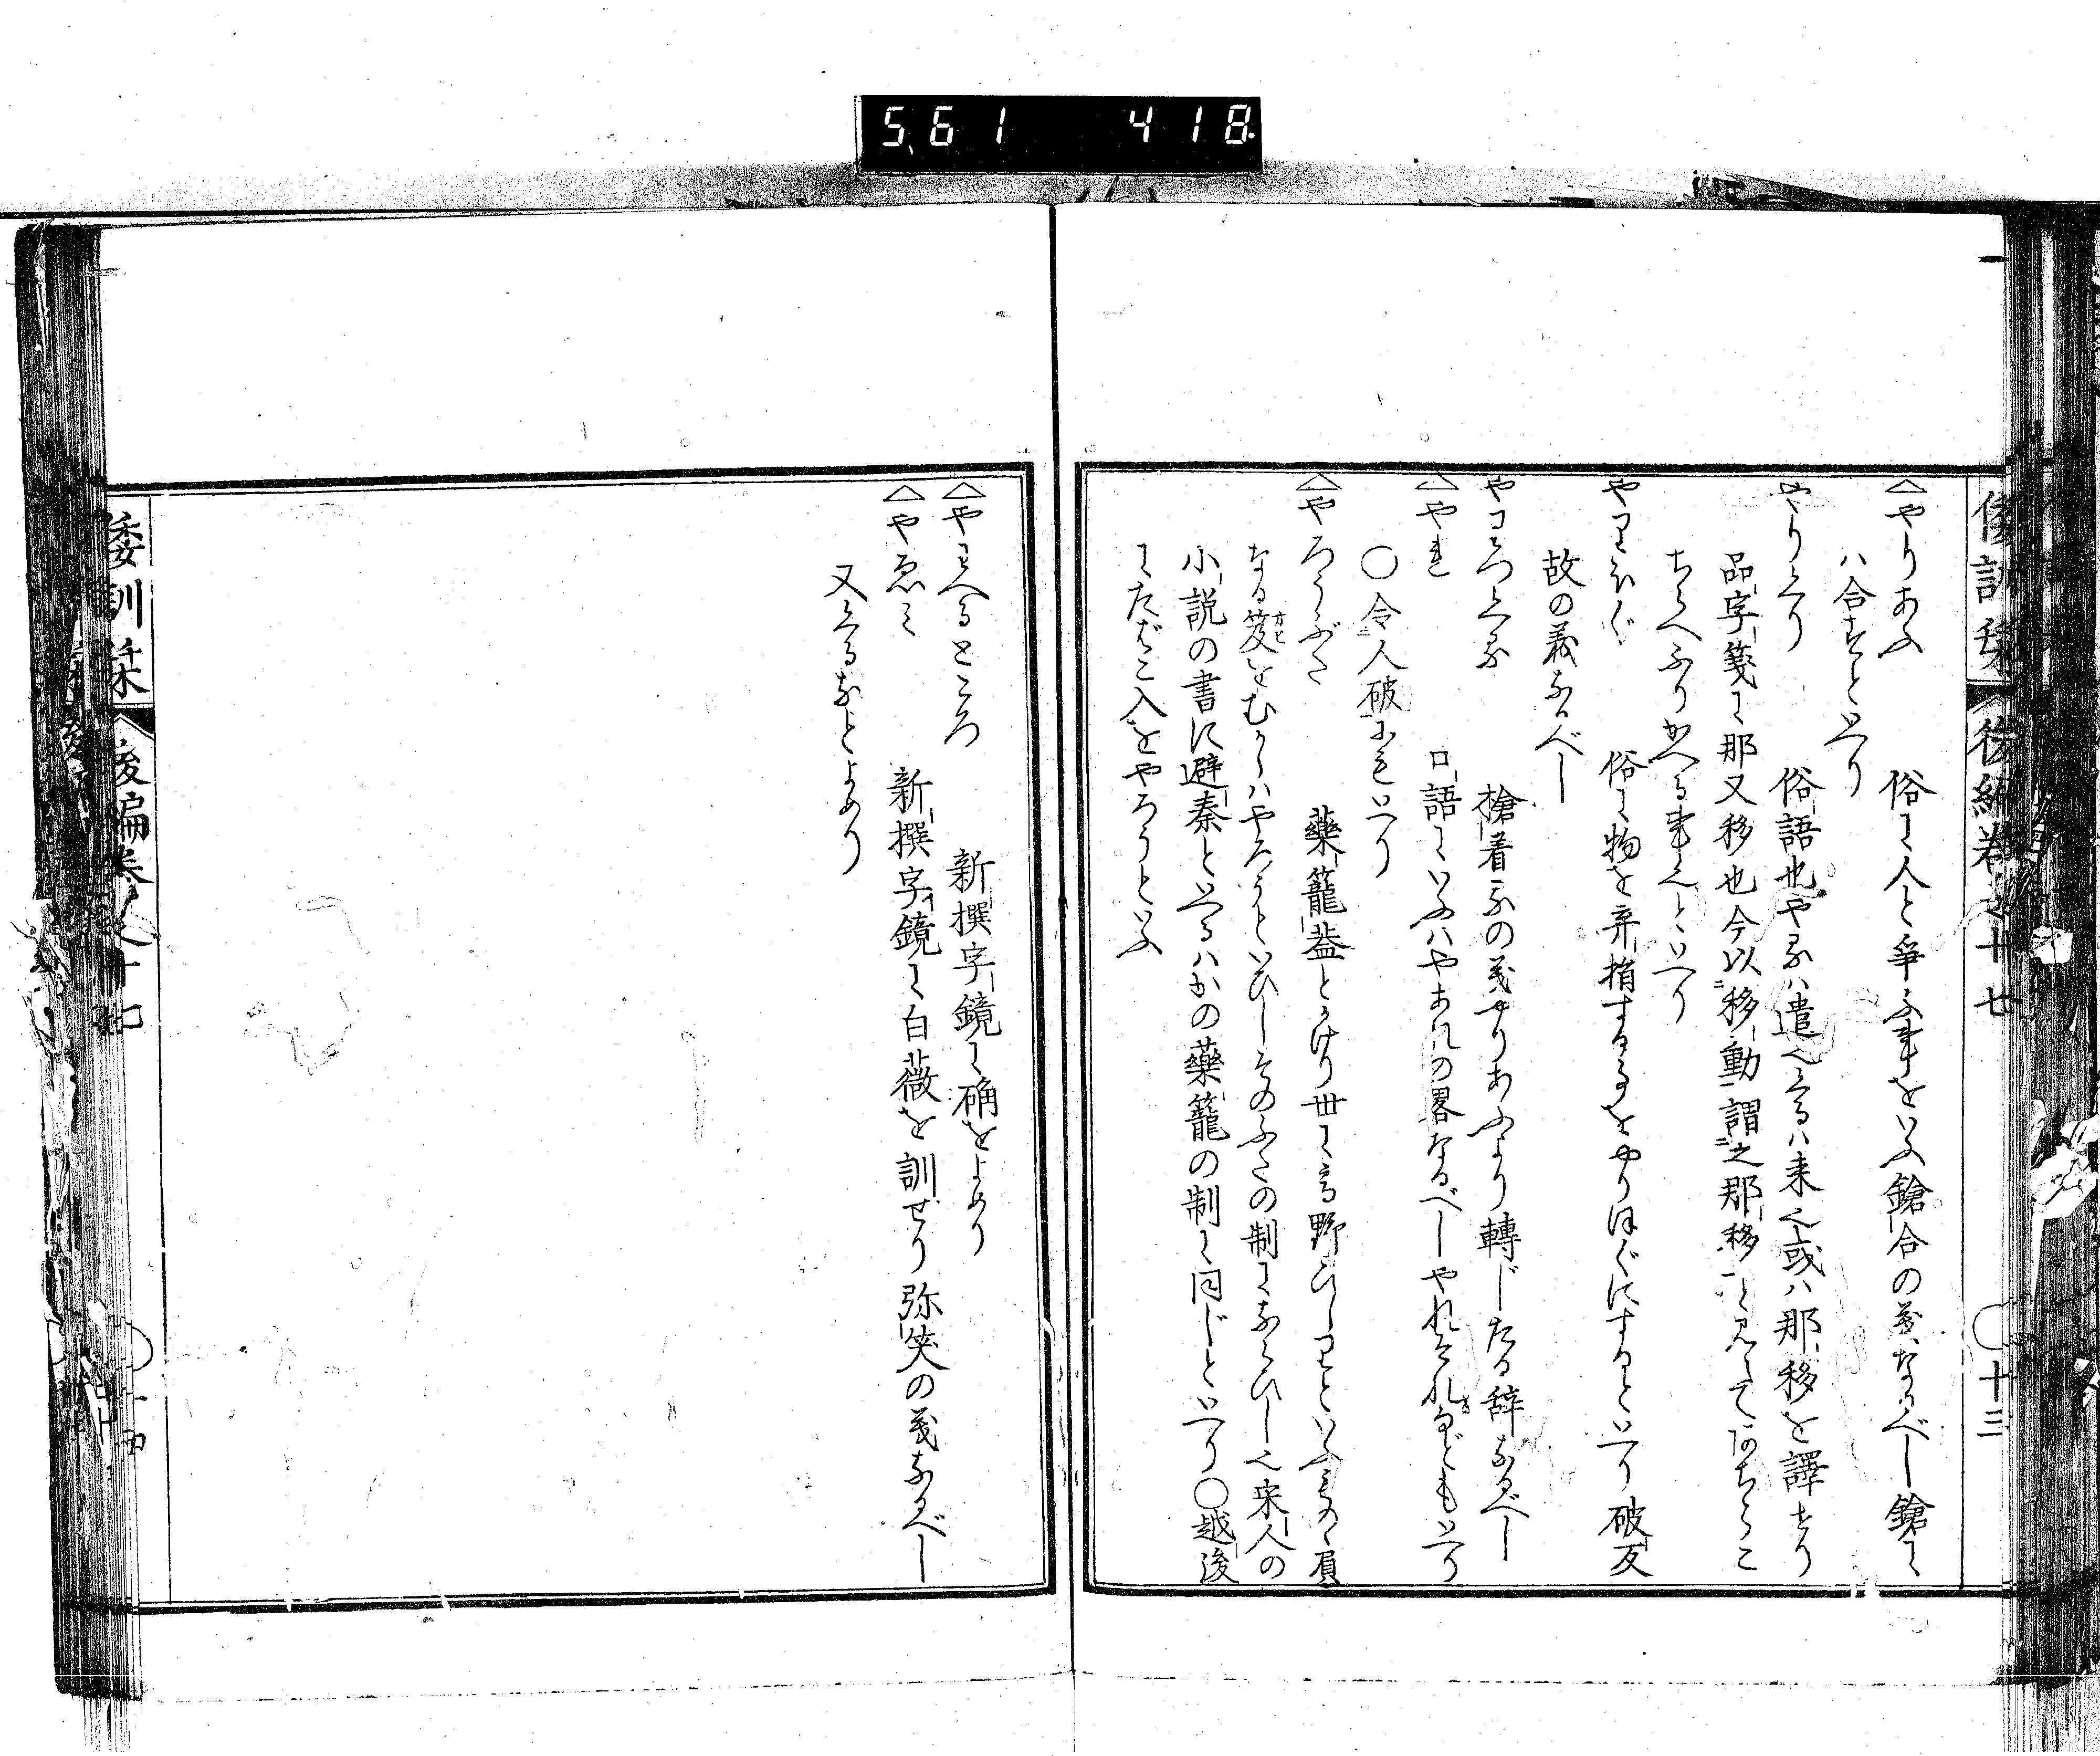 5,61 418.
倭訓栞 後編卷之十七 十三
△やりあふ 俗に人と爭ふ事をいふ鎗合の義なるべし鎗に
ハ合すといへり
やりくり 俗語也やるハ遣へくるハ来也或ハ那移を譯せり
品字箋に那又移也今以移動謂之那移と見えてあちらこ
ちらへふりかへる事也といへり
やりほぐ 俗に物を弃捐するをやりほぐにするといへり破反
故の義なるべし
やりつくる 槍着るの義やりあふより轉じたる辞なるべし
△やれ 口語にいふハやあれの畧なるべしやれそれなどもいへり
〇令人破をもいへり
△やろうぶた 藥籠葢とかけり世に高野ひじりといふものゝ屓
なる笈をむかしハやろうといひしそのふたの制にならひし也宋人の
小説の書に避秦といへるハかの藥籠の制に同じといへり〇越後
にたばこ入をやろうといふ
△やわへるところ 新撰字鏡に确をよめり
△やゑミ 新撰字鏡に白薇を訓せり弥笑の義なるべし
又くるなとよめり
倭訓栞 後編卷之十七 十四